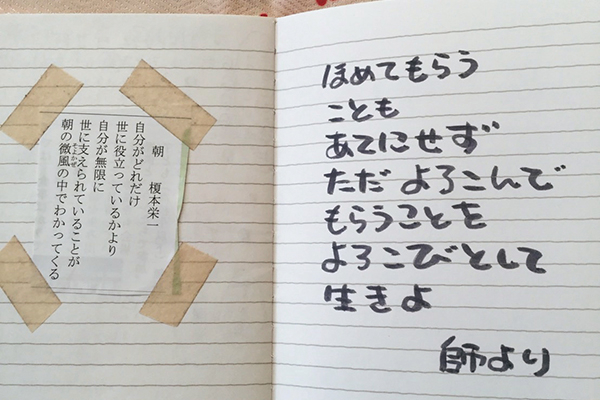 朝　榎本栄一
自分がどれだけ
世に役立っているかより
自分が無限に
世に支えられていることが
朝の微風の中でわかってくる
そよかぜ
ほめてもらう
ことも
あてにせず
ただよろこんで
もらうことを
よろこびとして
生きよ
師より